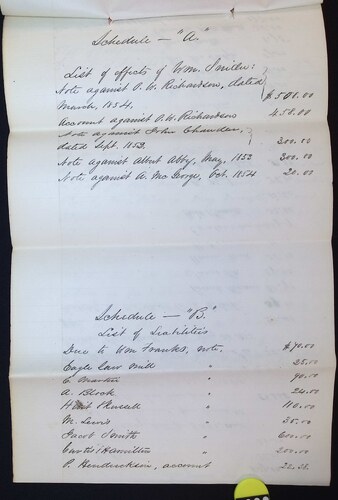 Schedule — "A."
List of effects of Wm. Snider:
Note against P. W. Richardson, dated
March, 1854, $500.00
Account against P. W. Richardson 450.00
Note against John Chandler,
dated Sept. 1853. 300.00
Note against Albert Abby, May, 1853 300.00
Note against A. McGeorge, Oct. 1854 20.00
Schedule — "B."
List of Liabilities
Due to Wm Franks, note, $70.00
Eagle Saw Mill " 25.00
C. Martin " 90.00
A. Block " 24.00
& Russell " 110.00
M. Lewis " 35.00
Jacob Smith " 600.00
Curtis & Hamilton " 200.00
P. Hendrickson, account